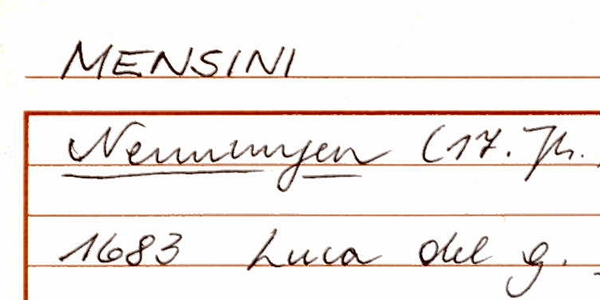 MENSINI
Nennungen (17. Jh.)
1683 Luca del g.